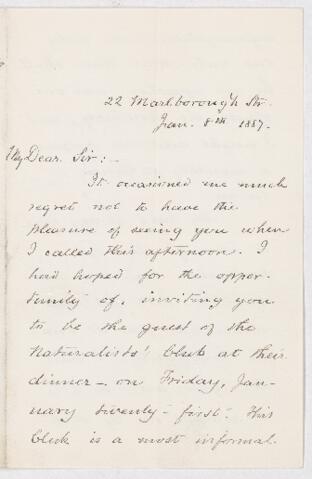 22 Marlborough St.
Jan. 8th 1887.
My Dear Sir:-
It occasioned me much
regret not to have the
pleasure of seeing you when
I called this afternoon. I
had hoped for the oppor-
tunity of, inviting you
to be the guest of the
Naturalists' Club at their
dinner - on Friday, Jan-
uary twenty-first. This
Club is a most informal